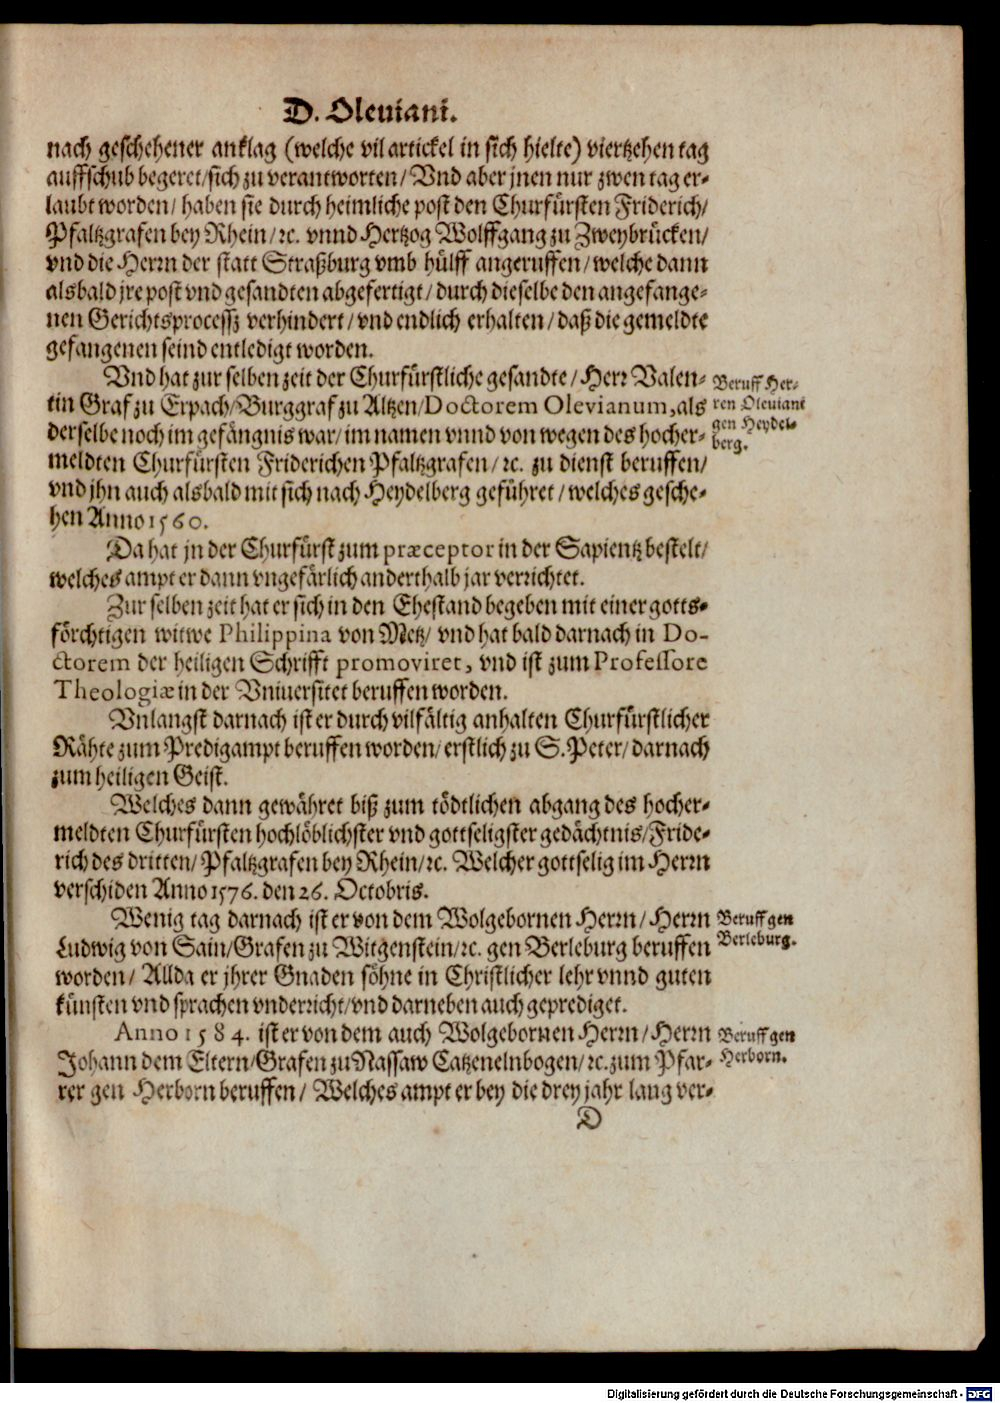 D. Oleviani.
nach geschehener anklag (welche vil artickel in sich hielte) viertzehen tag
auffschub begeret/sich zu verantworten/ Vnd aber jnen nur zwen tag er-
laubt worden/ haben sie durch heimliche post den Churfürsten Friderich/
Pfaltzgrafen bey Rhein/ ꝛc. vnnd Hertzog Wolffgang zu Zweybrücken/
vnd die Herrn der statt Straßburg vmb hülff angeruffen/ welche dann
alsbald jre post vnd gesandten abgefertigt/ durch dieselbe den angefange-
nen Gerichtsprocessz verhindert/ vnd endlich erhalten/ daß die gemeldte
gefangenen seind entledigt worden.
Vnd hat zur selben zeit der Churfürstliche gesandte/ Herr Valen-
tin Graf zu Erpach/Burggraf zu Altzen/Doctorem Olevianum, als
derselbe noch im gefängnis war/ im namen vnnd von wegen des hocher-
meldten Churfürsten Friderichen Pfaltzgrafen/ ꝛc. zu dienst beruffen/
vnd jhn auch alsbald mit sich nach Heydelberg geführet/ welches gesche-
hen Anno 1560.
Beruff Her-
ren Oleviani
gen Heydel-
berg.
Da hat jn der Churfürst zum præceptor in der Sapientz bestelt/
welches ampt er dann vngefärlich anderthalb jar verrichtet.
Zur selben zeit hat er sich in den Ehestand begeben mit einer gotts-
förchtigen witwe Philippina von Metz/ vnd hat bald darnach in Do-
ctorem der heiligen Schrifft promoviret, vnd ist zum Professore
Theologiæ in der Vniuersitet beruffen worden.
Vnlangst darnach ist er durch vilfältig anhalten Churfürstlicher
Rähte zum Predigampt beruffen worden/ erstlich zu S. Peter/ darnach
zum heiligen Geist.
Welches dann gewähret biß zum tödtlichen abgang des hocher-
meldten Churfürsten hochlöblichster vnd gottseligster gedächtnis/Fride-
rich des dritten/ Pfaltzgrafen bey Rhein/ꝛc. Welcher gottselig im Herrn
verschiden Anno 1576. den 26. Octobris.
Wenig tag darnach ist er von dem Wolgebornen Herrn/ Herrn
Ludwig von Sain/Grafen zu Witgenstein/ꝛc. gen Berleburg beruffen
worden/ Allda er jhrer Gnaden söhne in Christlicher lehr vnnd guten
künsten vnd sprachen vnderricht/vnd darneben auch geprediget.
Beruff gen
Berleburg.
Anno 1584. ist er von dem auch Wolgebornen Herrn/ Herrn
Johann dem Eltern/Grafen zu Nassaw Catzenelnbogen/ ꝛc. zum Pfar-
rer gen Herborn beruffen/ Welches ampt er bey die drey jahr lang ver-
Beruff gen
Herborn.
D
Digitalisierung gefördert durch die Deutsche Forschungsgemeinschaft - DFG